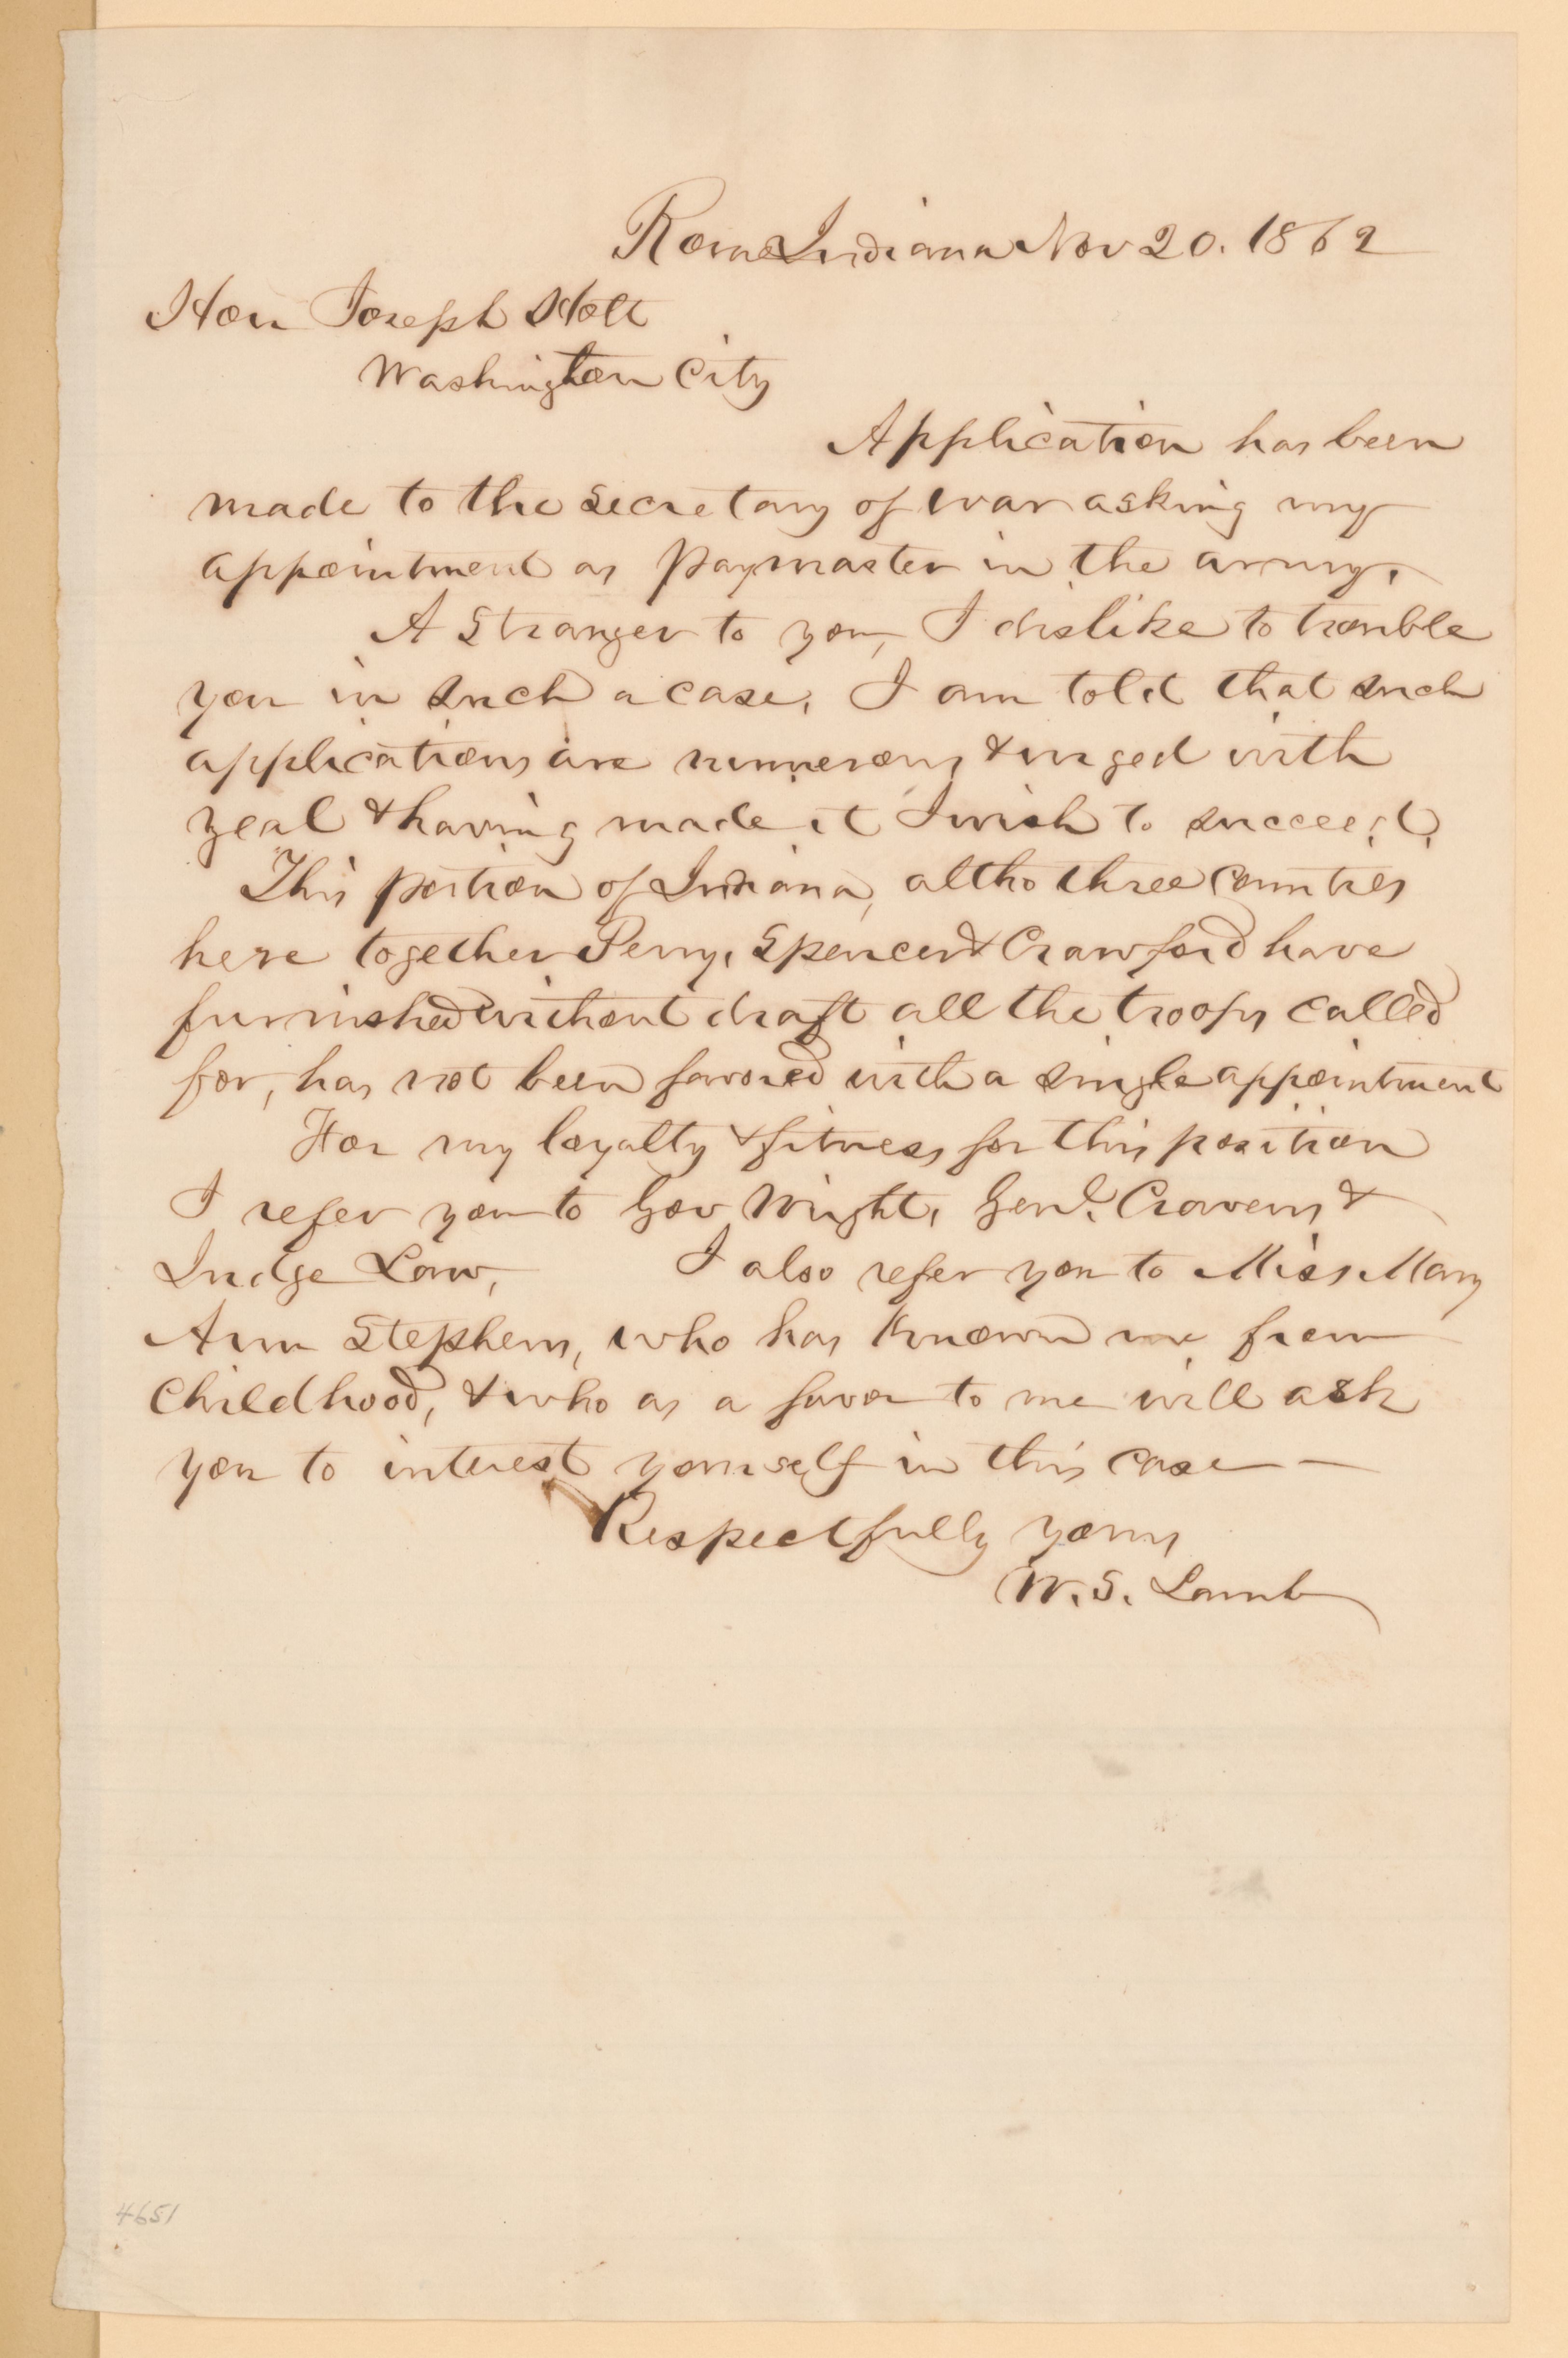 Rome Indiana Nov 20. 1862
Hon Joseph Holt
Washington City
Application has been
made to the Secretary of war asking my
appointment as Paymaster in the army.
A Stranger to you, I dislike to trouble
you in such a case. I am told that such
applications are numerous & urged with
zeal & having made it I wish to succeed.
This portion of Indiana, altho three Counties
here together Perry, Spencer & Crawford have
furnished without draft all the troops called
for, has not been favored with a single appointment
For my loyalty & fitness for this position
I refer you to Gov Wright, Genl. Cravens &
Judge Law, I also refer you to Miss Mary
Ann Stephens, who has known me from
Childhood, & who as a favor to me will ask
you to interest yourself in this case —
Respectfully yours
W. S. Lamb
4651